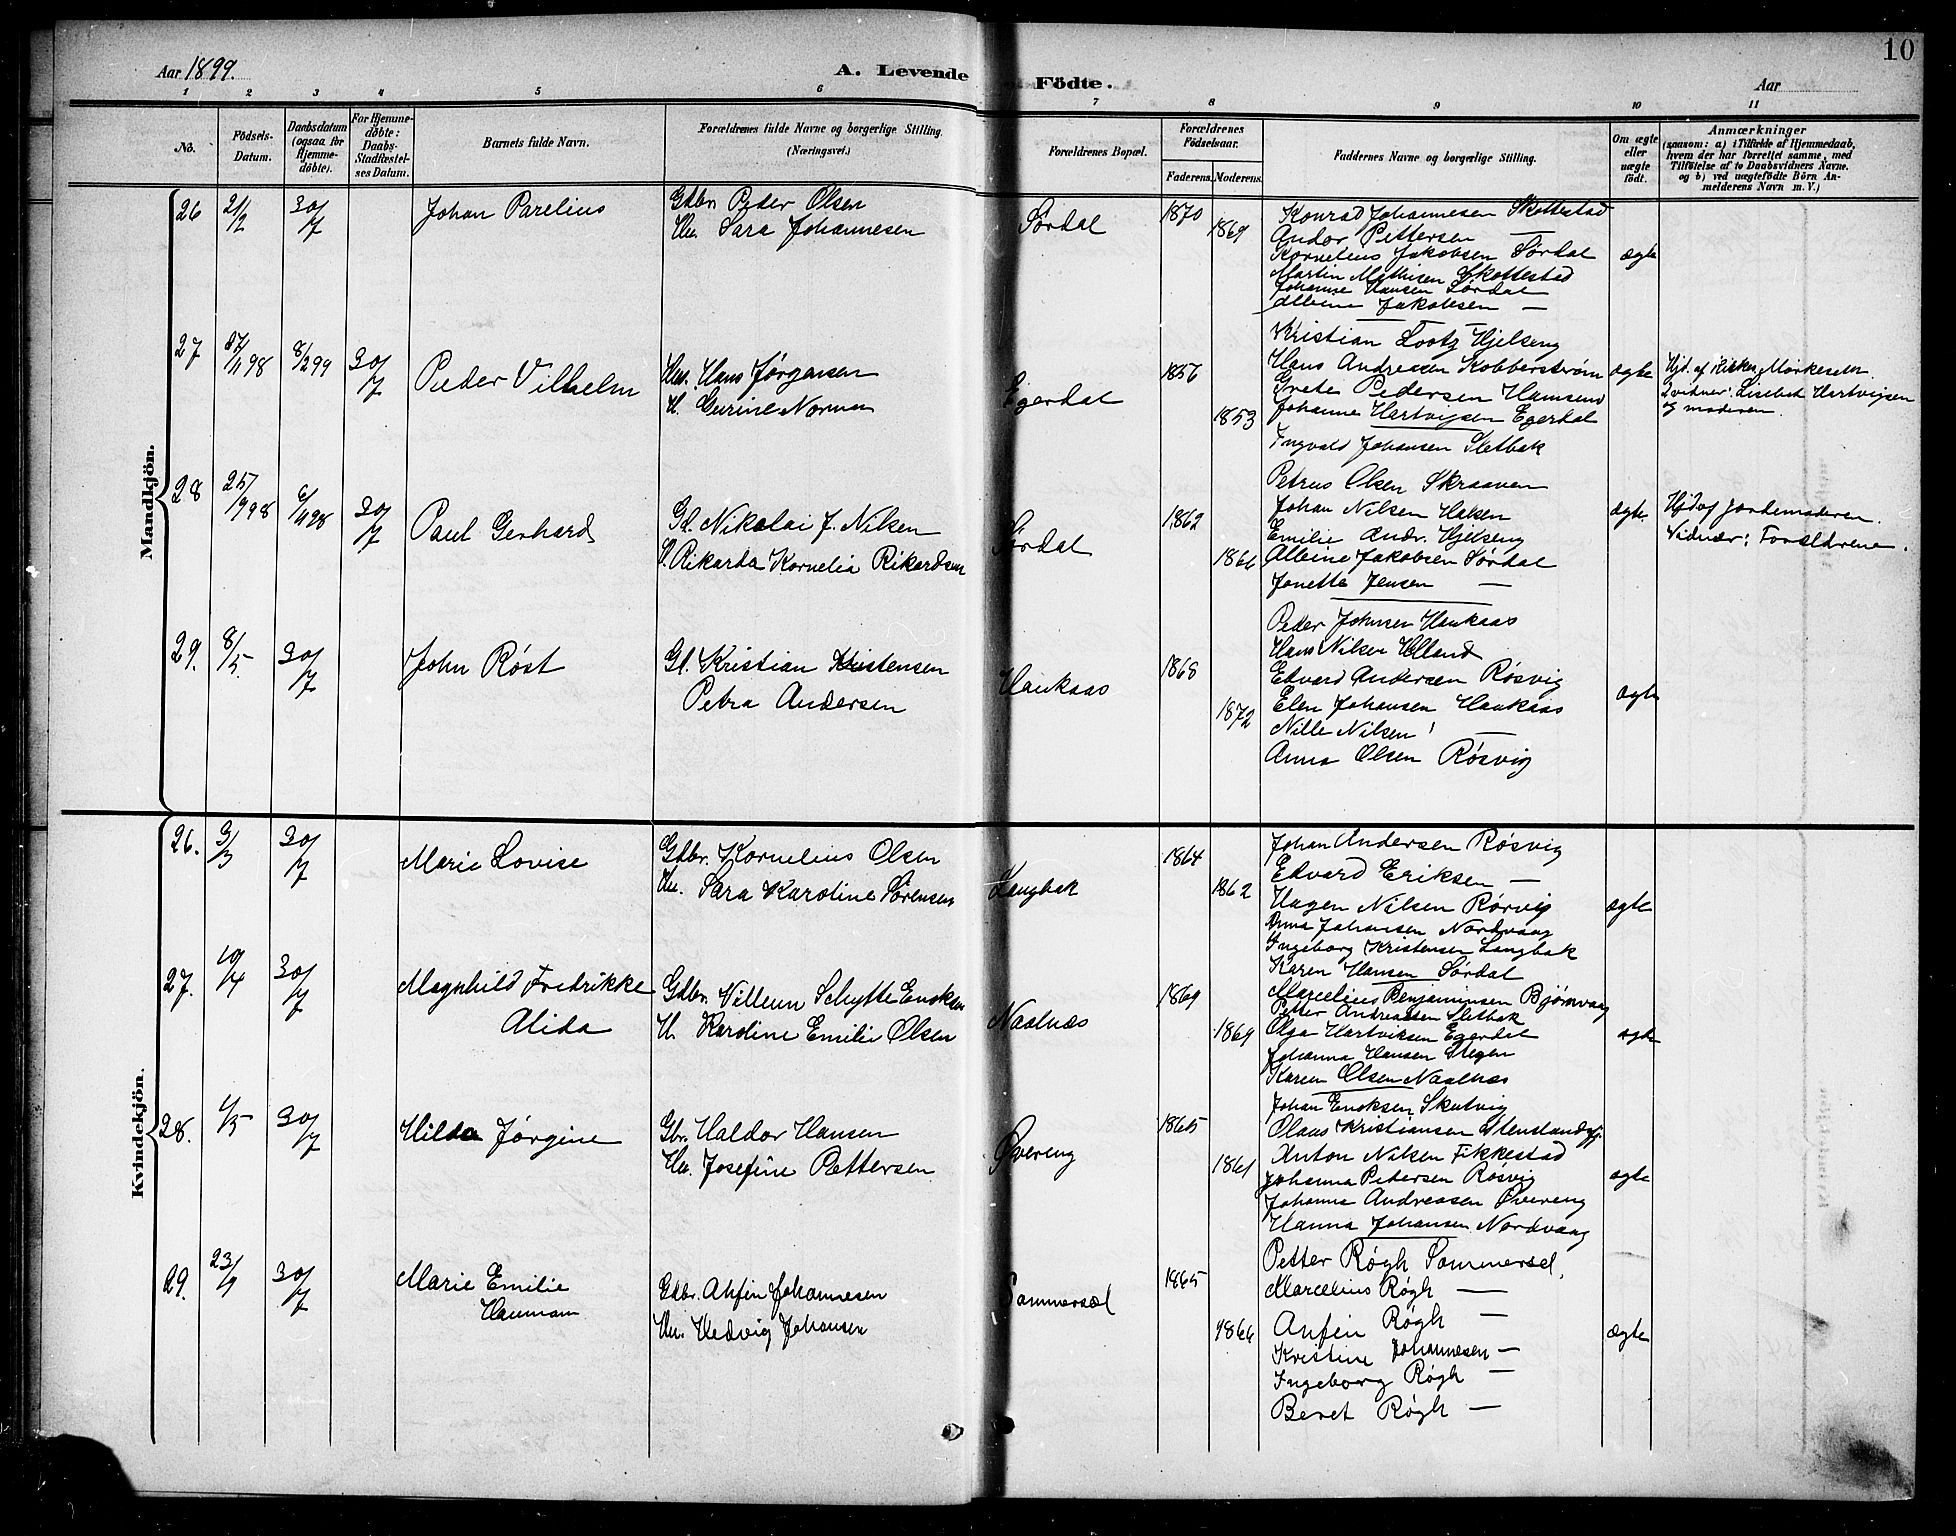 10
Aar 1899.
A. Levende Födte.
Aar
1 2 3 4 5 6 7 8 9 10 11
No.
Födsels-Datum.
Daabsdatum (ogsaa for Hjemmedöbte).
For Hjemmedöbte: Daabs-Stadfæstelses Datum.
Barnets fulde Navn.
Forældrenes fulde Navne og borgerlige Stilling. (Næringsvei.)
Forældrenes Bopæl.
Forældrenes Födselsaar.
Faderens. Moderens.
Faddernes Navne og borgerlige Stilling.
Om ægte eller uægte födt.
Anmærkninger
(saasom: a) i Tilfælde af Hjemmedaab, hvem der har forrettet samme, med Tilföielse af to Daabsvidners Navne. og b) ved uægtefödte Börn Anmelderens Navn m. V.)
Mandkjön.
26 21/2 30/7 Johan Parelius
Gdbr. Peder Olsen
Hu. Sara Johannesen
Sørdal 1870 1869
Konrad Johannesen Skottestad
Andor Pettersen —
Kornelius Jakobsen Sørdal
Martin Mathisen Skottestad
Johanne Hansen Sørdal
Albine Jakobsen —
ægte
27 27/11 98 8/2 99 30/7 Peder Vilhelm
Hus. Hans Jørgensen
H. Gurine Norman
Egerdal 1856 1853
Kristian Lootz Hjelseng
Hans Andreasen Kobberstrøm
Grete Pedersen Hamsund
Johanne Hartvigsen Egerdal
Ingvald Johansen Sletbak
ægte
Hjd. af Mørkeseth
2 vidner: Lisebet Hartvigsen
og moderen.
28 25/9 98 6/11 98 30/7 Paul Gerhard
Gd. Nikolai J. Nilsen
H. Rikarda Kornelia Rikardsen
Sørdal 1862 1866
Petrus Olsen Skraaven
Johan Nilsen Haken
Emilie Andr. Hjelseng
Albine Jakobsen Sørdal
Jonette Jensen —
ægte.
Hjd af Jordemoderen.
Vidner: Forældrene.
29. 8/5 30/7 John Røst
Gd. Kristian Kristensen
Petra Andersen
Haukaas 1868 1872
Peder Johnsen Haukaas
Hans Nilsen Helland
Edvard Andersen Røsvig
Elen Johansen Haukaas
Nille Nilsen —
Anna Olsen Røsvig
ægte
Kvindekjön.
26. 3/3 30/7 Marie Lovise
Gdbr. Kornelius Olsen
Hu. Sara Karoline Sørensen
Langbak 1864 1862
Johan Andersen Røsvig
Edvard Eriksen —
Hagen Nilsen Rørvig
Anna Johansen Nordvaag
Ingeborg Kristensen Langbak
Karen Hansen Sørdal
ægte
27. 19/4 30/7 Magnhild Fredrikke
Alida
Gdbr. Villum Schytte Enoksen
H. Karoline Emilie Olsen
Naalnæs 1869 1869
Marcelius Benjaminsen Bjørnvaag
Petter Andreassen Sletbak
Olga Hartviksen Egerdal
Johanna Hansen Stegen
Karen Olsen Naalnæs
ægte
28. 1/5 30/7 Hilda Jørgine
Gbr. Haldor Hansen
Hu. Josefine Pettersen
Øvereng 1865 1861
Johan Enoksen Skutvig
Olaus Kristiansen
Anton Nilsen Fikkestad
Johanna Pedersen Røsvig
Johanna Andreasen Øvereng
Hanna Johansen Nordvaag
ægte
29. 23/9 30/7 Marie Emilie
Hanman
Gdbr. Anfin Johannesen
Hu. Hedvig Johansen
Sommersel 1865 1866
Petter Røgh Sommersel.
Marcelius Røgh —
Anfin Røgh —
Kristine Johannesen —
Ingeborg Røgh —
Beret Røgh —
ægte